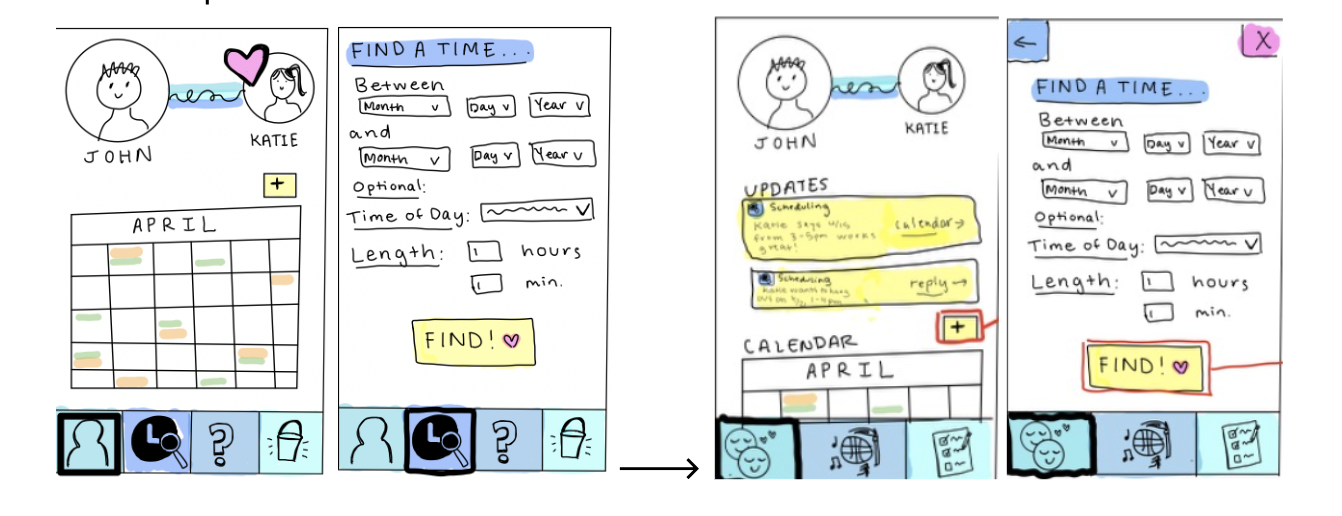 JOHN
KATIE
+
APRIL
FIND A TIME...
Between
Month v Day v Year v
and
Month v Day v Year v
Optional:
Time of Day: v
Length: 1 hours
1 min.
FIND!
?
?
JOHN
KATIE
UPDATES
Scheduling
Katie says 4/15
from 3-5pm works
great!
calendar →
Scheduling
Katie wants to hang
out on 1-4pm
reply →
+
CALENDAR
APRIL
←
X
FIND A TIME...
Between
Month v Day v Year v
and
Month v Day v Year v
Optional:
Time of Day: v
Length: 1 hours
1 min.
FIND!